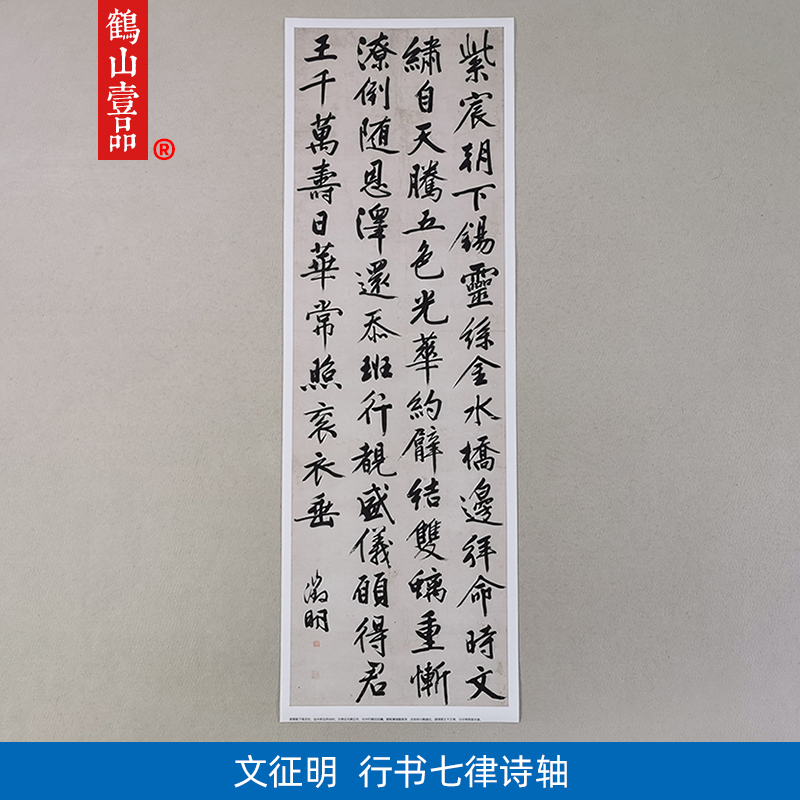 鶴山壹品
®
紫宸朝下錫靈絲金水橋邊拜命時文
繡自天騰五色光華約臂結雙螭重慚
潦倒随恩澤還忝班行覩盛儀願得君
王千萬壽日華常照衮衣垂
徵明
文征明 行书七律诗轴